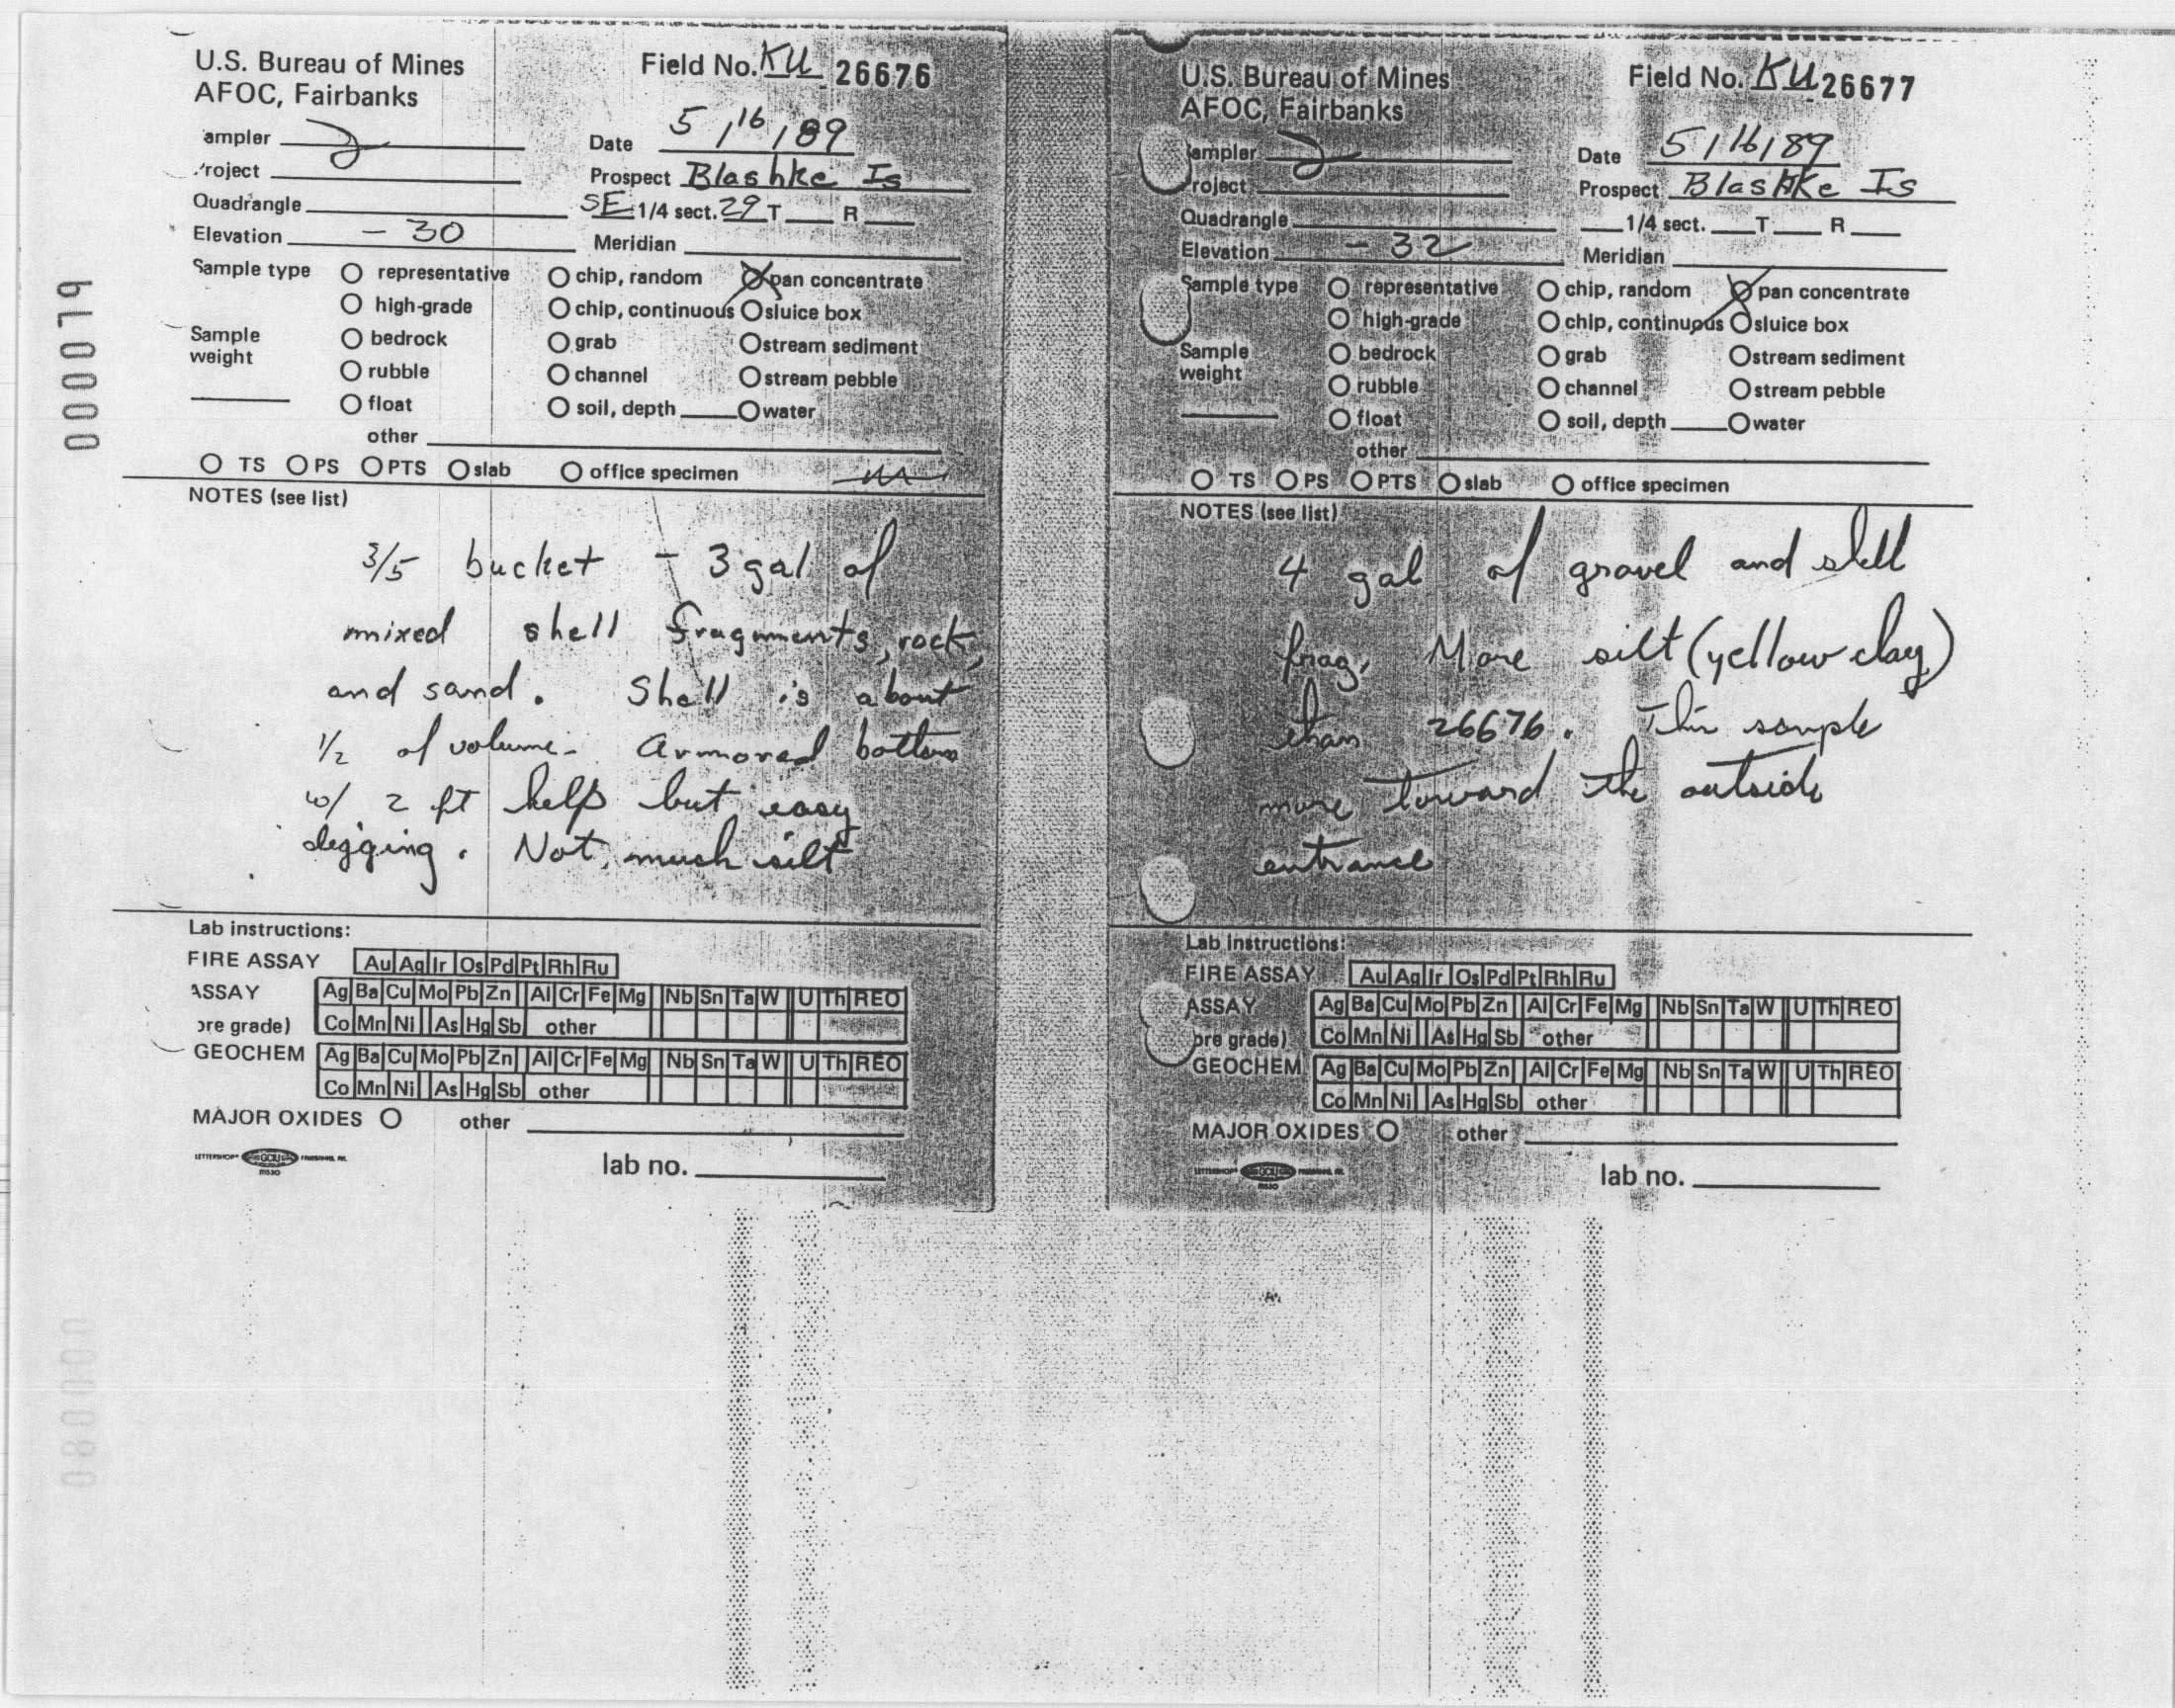 U.S. Bureau of Mines
AFOC, Fairbanks
Field No. KU 26676
ampler
Date 5/16/89
roject
Prospect Blashke Is
Quadrangle
SE 1/4 sect. 29 T R
Elevation - 30
Meridian
Sample type representative chip, random pan concentrate
high-grade chip, continuous sluice box
Sample weight
bedrock grab stream sediment
rubble channel stream pebble
float soil, depth water
other
TS PS PTS slab office specimen
NOTES (see list)
3/5 bucket - 3 gal of
mixed shell fragments, rock,
and sand. Shell is about
1/2 of volume. Armored bottom
w/ 2 ft kelp but easy
digging. Not much silt
Lab instructions:
FIRE ASSAY Au Ag Ir Os Pd Pt Rh Ru
ASSAY Ag Ba Cu Mo Pb Zn Al Cr Fe Mg Nb Sn Ta W U Th REO
ore grade) Co Mn Ni As Hg Sb other
GEOCHEM Ag Ba Cu Mo Pb Zn Al Cr Fe Mg Nb Sn Ta W U Th REO
Co Mn Ni As Hg Sb other
MAJOR OXIDES other
LETTERSHOP GCIU
lab no.
U.S. Bureau of Mines
AFOC, Fairbanks
Field No. KU 26677
ampler
Date 5/16/89
roject
Prospect Blashke Is
Quadrangle
1/4 sect. T R
Elevation - 32
Meridian
Sample type representative chip, random pan concentrate
high-grade chip, continuous sluice box
Sample weight
bedrock grab stream sediment
rubble channel stream pebble
float soil, depth water
other
TS PS PTS slab office specimen
NOTES (see list)
4 gal of gravel and shell
frag. More silt (yellow clay)
than 26676. This sample
more toward the outside
entrance
Lab instructions:
FIRE ASSAY Au Ag Ir Os Pd Pt Rh Ru
ASSAY Ag Ba Cu Mo Pb Zn Al Cr Fe Mg Nb Sn Ta W U Th REO
ore grade) Co Mn Ni As Hg Sb other
GEOCHEM Ag Ba Cu Mo Pb Zn Al Cr Fe Mg Nb Sn Ta W U Th REO
Co Mn Ni As Hg Sb other
MAJOR OXIDES other
LETTERSHOP GCIU
lab no.
000079
000080